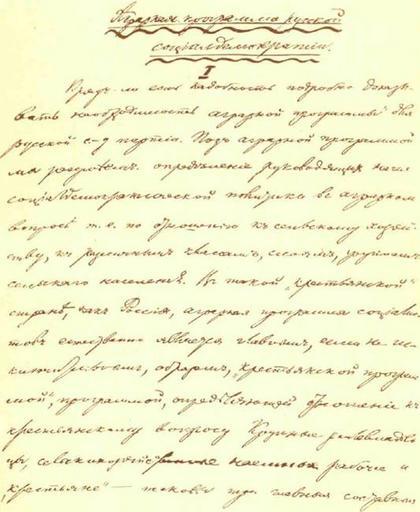 Аграрная программа русской
социалдемократии.
I
Вряд-ли есть надобность подробно доказы-
вать необходимость аграрной программы для
русской с-д партіи. Под аграрной программой
мы разумѣем определеніе руководящих начал
социалдемократической политики в аграрном
вопросѣ т. е. по отношенію к сельскому хозяй-
ству, к различным классам, слоям, группам
сельскаго населенія. В такой „крестьянской"
странѣ, как Россія, аграрная программа социалис-
тов естественно является главным, если не ис-
ключительным, образом, „крестьянской програм-
мой", программой, определяющей отношеніе к
крестьянскому вопросу. Крупные землевладель-
цы, сельскохозяйств наемные рабочіе и
„крестьяне" — таковы три главныя составныя